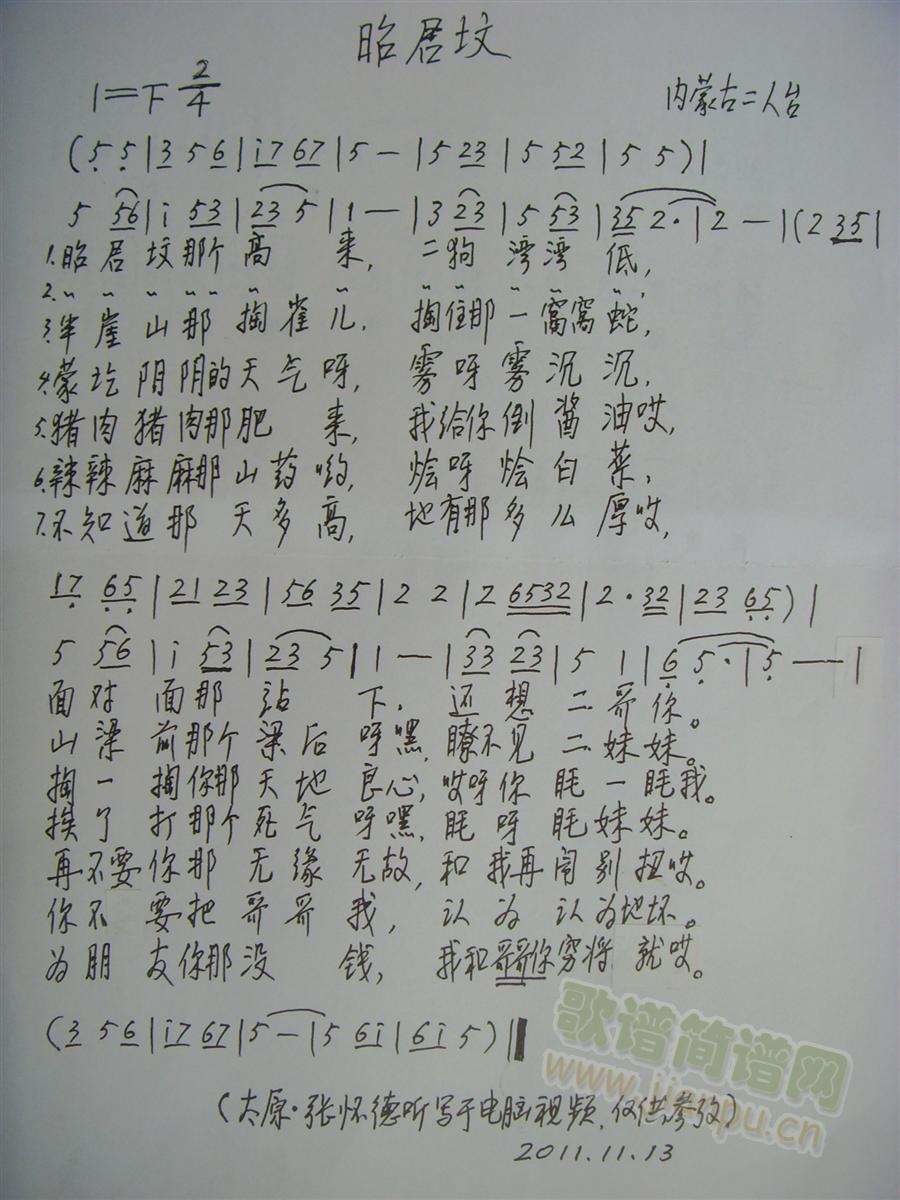 昭君坟
1=下 2/4
内蒙古二人台
(5 5|3 5 6|i7 67|5 —|5 23|5 52|5 5)|
5 56|i 53|23 5|1 —|3 23|5 53|35 2·|2 —|(2 35|
1.昭君坟那个高 来, 二狗湾湾低,
2. " " " " " " " " " " " " ,
3.半崖山那掏雀儿. 掏住那一窝窝蛇,
4.蒙圪阴阴的天气呀, 雾呀雾沉沉.
5.猪肉猪肉那肥 来, 我给你倒酱油哎,
6.辣辣麻麻那山药哟, 烩呀烩白菜,
7.不知道那天多高, 地有那多么厚哎,
17 65|21 23|56 35|2 2|2 6532|2·32|23 65)|
5 56|i 53|23 5|1 —|33 23|5 1|6 5·|5 —|
面对面那站 下. 还想二哥你。
山梁前那个梁后呀嘿, 瞭不见二妹妹。
掏一掏你那天地良心, 哎呀你眊一眊我。
挨了打那个死气呀嘿, 眊呀眊妹妹。
再不要你那无缘无故, 和我再闹别扭哎。
你不要把哥哥我, 认为认为地坏。
为朋友你那没 钱, 我和哥哥你穷将就哎。
(3 56|i7 67|5 —|5 6i|6i 5)|
(太原·张怀德听写于电脑视频, 仅供参攷)
2011.11.13
歌谱简谱网
www.jianpu.cn